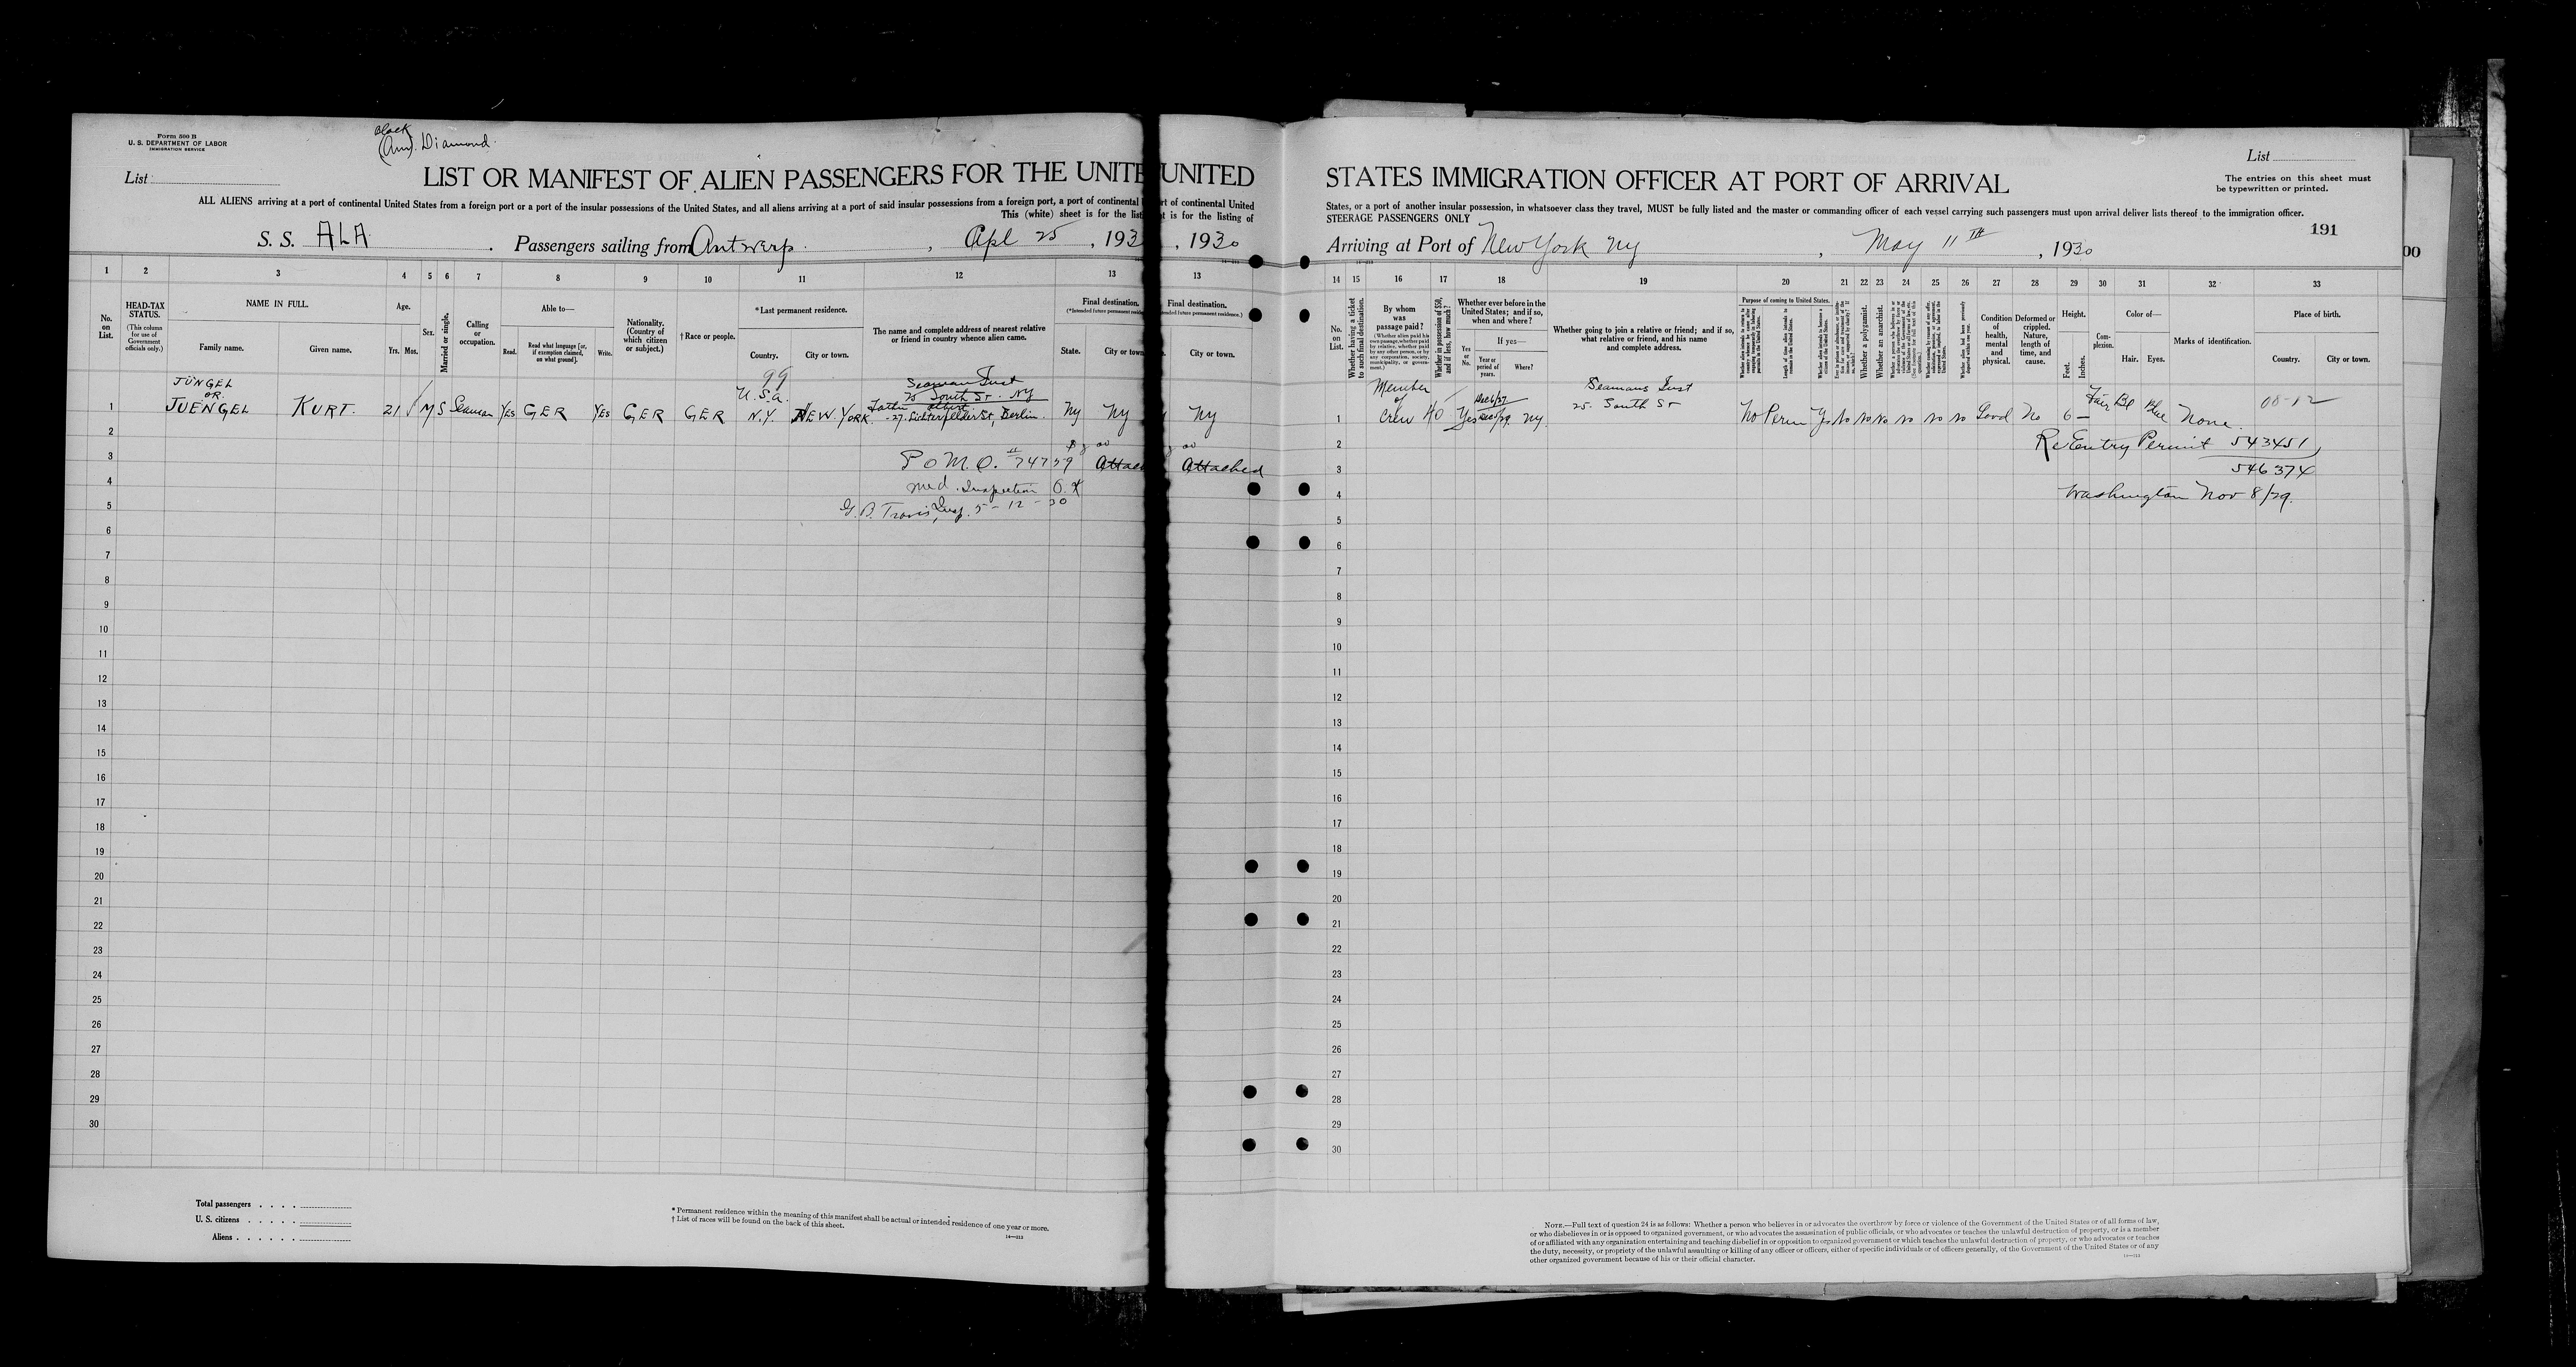 Form 500 B
U. S. DEPARTMENT OF LABOR
IMMIGRATION SERVICE
Black
(Am). Diamond.
List
LIST OR MANIFEST OF ALIEN PASSENGERS FOR THE UNITE
ALL ALIENS arriving at a port of continental United States from a foreign port or a port of the insular possessions of the United States, and all aliens arriving at a port of said insular possessions from a foreign port, a port of continental
This (white) sheet is for the list
S. S. ALA . Passengers sailing from Antwerp. , Apl 25 , 193
1 2 3 4 5 6 7 8 9 10 11 12 13
No. on List.
HEAD-TAX STATUS.
(This column for use of Government officials only.)
NAME IN FULL.
Family name. Given name.
Age.
Yrs. Mos.
Sex.
Married or single.
Calling or occupation.
Able to—
Read. Read what language [or, if exemption claimed, on what ground]. Write.
Nationality. (Country of which citizen or subject.)
† Race or people.
*Last permanent residence.
Country. City or town.
The name and complete address of nearest relative or friend in country whence alien came.
Final destination.
State. City or town
99
JÜNGEL
OR.
U.S.A.
Seaman Inst
25 South St. NY
Father Albert
1 JUENGEL KURT. 21 M S Seaman Yes GER Yes GER GER N.Y. NEW YORK. 27 Lichterfelder St, Berlin. NY NY
2
3 P O M. O. #74759 Attac
4 Med. Inspection O.K
5 G. B. Travis, Insp. 5-12-30
6
7
8
9
10
11
12
13
14
15
16
17
18
19
20
21
22
23
24
25
26
27
28
29
30
Total passengers . . . .
U. S. citizens . . . . .
Aliens . . . . . .
* Permanent residence within the meaning of this manifest shall be actual or intended residence of one year or more.
† List of races will be found on the back of this sheet.
UNITED
rt of continental United
t is for the listing of
, 1930
13
Final destination.
City or town.
NY
Attached
STATES IMMIGRATION OFFICER AT PORT OF ARRIVAL
List
The entries on this sheet must
be typewritten or printed.
States, or a port of another insular possession, in whatsoever class they travel, MUST be fully listed and the master or commanding officer of each vessel carrying such passengers must upon arrival deliver lists thereof to the immigration officer.
STEERAGE PASSENGERS ONLY
191
Arriving at Port of New York NY , May 11TH , 1930
00
14 15 16 17 18 19 20 21 22 23 24 25 26 27 28 29 30 31 32 33
No. on List.
Whether having a ticket to such final destination.
By whom was passage paid?
Whether in possession of $50, and if less, how much?
Whether ever before in the United States; and if so, when and where?
Yes or No.
If yes—
Year or period of years. Where?
Whether going to join a relative or friend; and if so, what relative or friend, and his name and complete address.
Purpose of coming to United States.
Whether a polygamist.
Whether an anarchist.
Condition of health, mental and physical.
Deformed or crippled. Nature, length of time, and cause.
Height.
Feet. Inches.
Complexion.
Color of—
Hair. Eyes.
Marks of identification.
Place of birth.
Country. City or town.
1 Member of Crew NO Yes NY. Seamans Inst 25. South St No Perm Yes No No No No No No Good No 6 – Fair Bl Blue None.
2 ReEntry Permit 543451
3 546374
4 Washington Nov 8/29.
5
6
7
8
9
10
11
12
13
14
15
16
17
18
19
20
21
22
23
24
25
26
27
28
29
30
NOTE.—Full text of question 24 is as follows: Whether a person who believes in or advocates the overthrow by force or violence of the Government of the United States or of all forms of law,
or who disbelieves in or is opposed to organized government, or who advocates the assassination of public officials, or who advocates or teaches the unlawful destruction of property, or is a member
of or affiliated with any organization entertaining and teaching disbelief in or opposition to organized government or which teaches the unlawful destruction of property, or who advocates or teaches
the duty, necessity, or propriety of the unlawful assaulting or killing of any officer or officers, either of specific individuals or of officers generally, of the Government of the United States or of any
other organized government because of his or their official character.